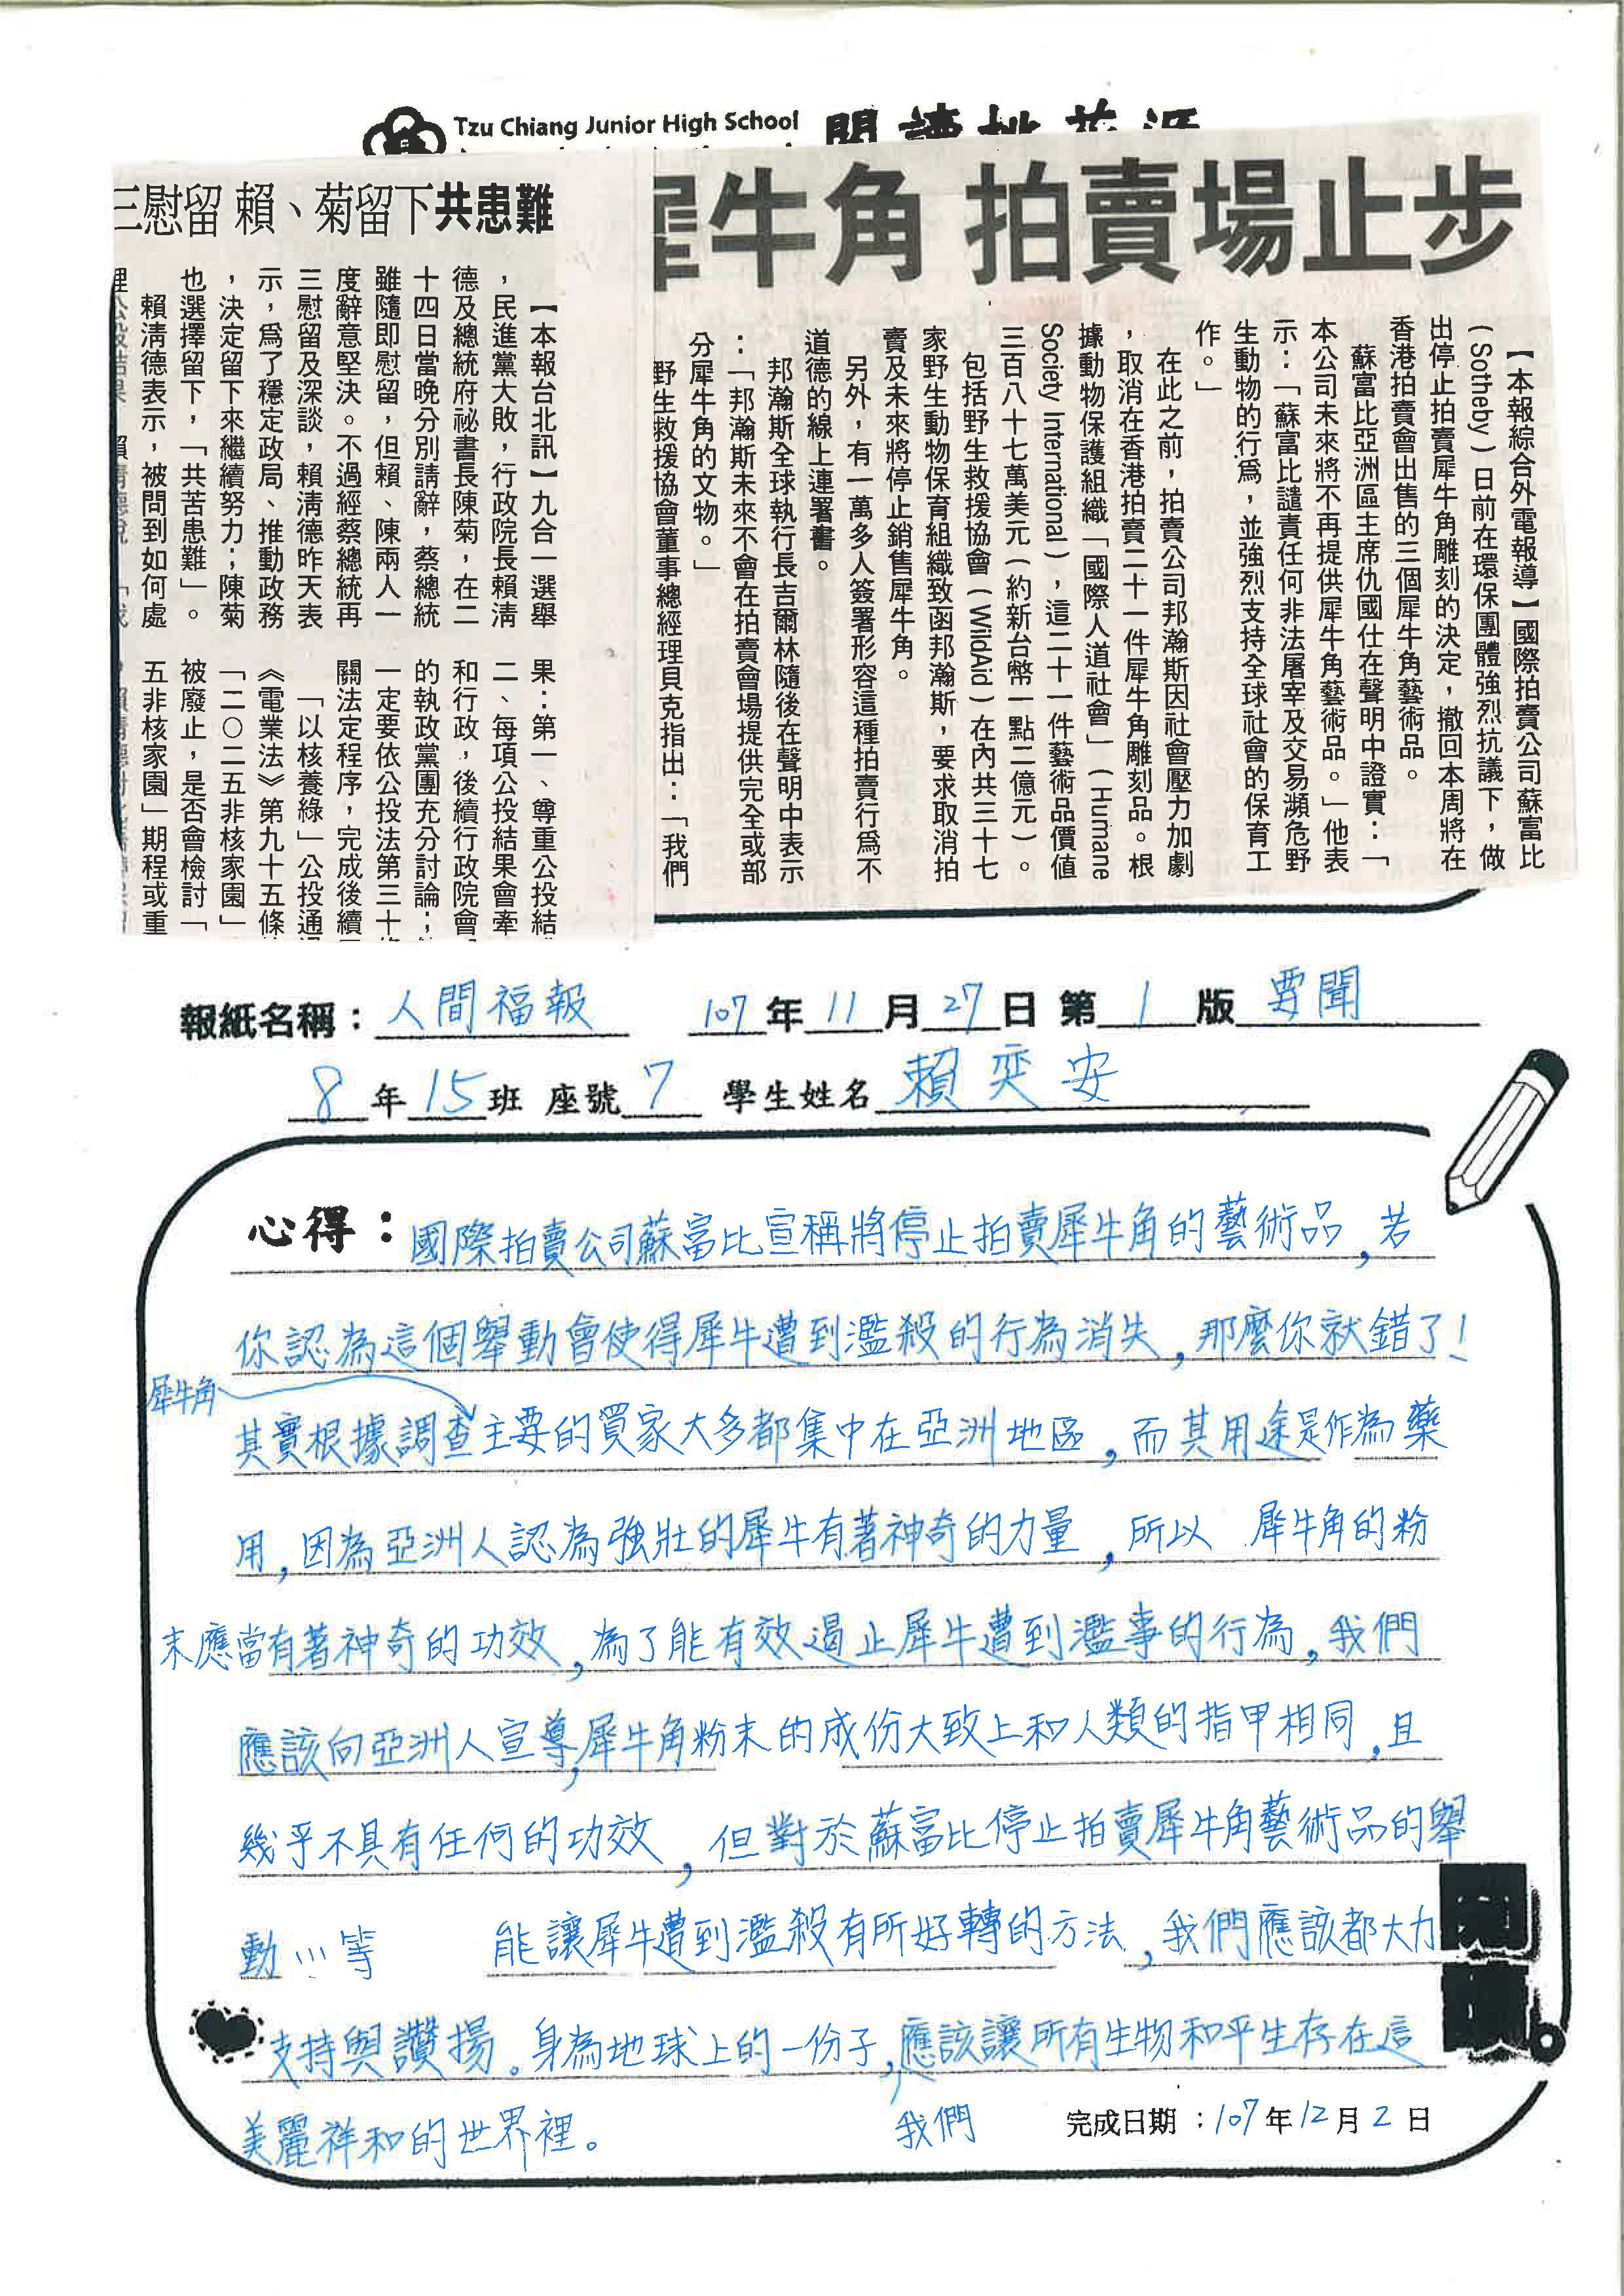 Tzu Chiang Junior High School
犀牛角 拍賣場止步
【本報綜合外電報導】國際拍賣公司蘇富比
(Sotheby)日前在環保團體強烈抗議下,做
出停止拍賣犀牛角雕刻的決定,撤回本周將在
香港拍賣會出售的三個犀牛角藝術品。
蘇富比亞洲區主席仇國仕在聲明中證實:「
本公司未來將不再提供犀牛角藝術品。」他表
示:「蘇富比譴責任何非法屠宰及交易瀕危野
生動物的行為,並強烈支持全球社會的保育工
作。」
在此之前,拍賣公司邦瀚斯因社會壓力加劇
,取消在香港拍賣二十一件犀牛角雕刻品。根
據動物保護組織「國際人道社會」(Humane
Society International),這二十一件藝術品價值
三百八十七萬美元(約新台幣一點二億元)。
包括野生救援協會(WildAid)在內共三十七
家野生動物保育組織致函邦瀚斯,要求取消拍
賣及未來將停止銷售犀牛角。
另外,有一萬多人簽署形容這種拍賣行為不
道德的線上連署書。
邦瀚斯全球執行長吉爾林隨後在聲明中表示
:「邦瀚斯未來不會在拍賣會場提供完全或部
分犀牛角的文物。」
野生救援協會董事總經理貝克指出:「我們
三慰留 賴、菊留下共患難
【本報台北訊】九合一選舉
,民進黨大敗,行政院長賴清
德及總統府祕書長陳菊,在二
十四日當晚分別請辭,蔡總統
雖隨即慰留,但賴、陳兩人一
度辭意堅決。不過經蔡總統再
三慰留及深談,賴清德昨天表
示,為了穩定政局、推動政務
,決定留下來繼續努力;陳菊
也選擇留下,「共苦患難」。
賴清德表示,被問到如何處
果:第一、尊重公投結
二、每項公投結果會牽
和行政,後續行政院會
的執政黨團充分討論;
一定要依公投法第三十
關法定程序,完成後續
「以核養綠」公投通
《電業法》第九十五條
「二○二五非核家園」
被廢止,是否會檢討「
五非核家園」期程或重
報紙名稱:人間福報 107年11月27日 第1版 要聞
8年15班 座號7 學生姓名 賴奕安
心得:國際拍賣公司蘇富比宣稱將停止拍賣犀牛角的藝術品,若
你認為這個舉動會使得犀牛遭到濫殺的行為消失,那麼你就錯了!
犀牛角
其實根據調查主要的買家大多都集中在亞洲地區,而其用途是作為藥
用,因為亞洲人認為強壯的犀牛有著神奇的力量,所以 犀牛角的粉
末應當有著神奇的功效,為了能有效遏止犀牛遭到濫事的行為,我們
應該向亞洲人宣導,犀牛角粉末的成份大致上和人類的指甲相同,且
幾乎不具有任何的功效,但對於蘇富比停止拍賣犀牛角藝術品的舉
動…等 能讓犀牛遭到濫殺有所好轉的方法,我們應該都大力
支持與讚揚。身為地球上的一份子,應該讓所有生物和平生存在這
美麗祥和的世界裡。
我們
完成日期:107年12月2日